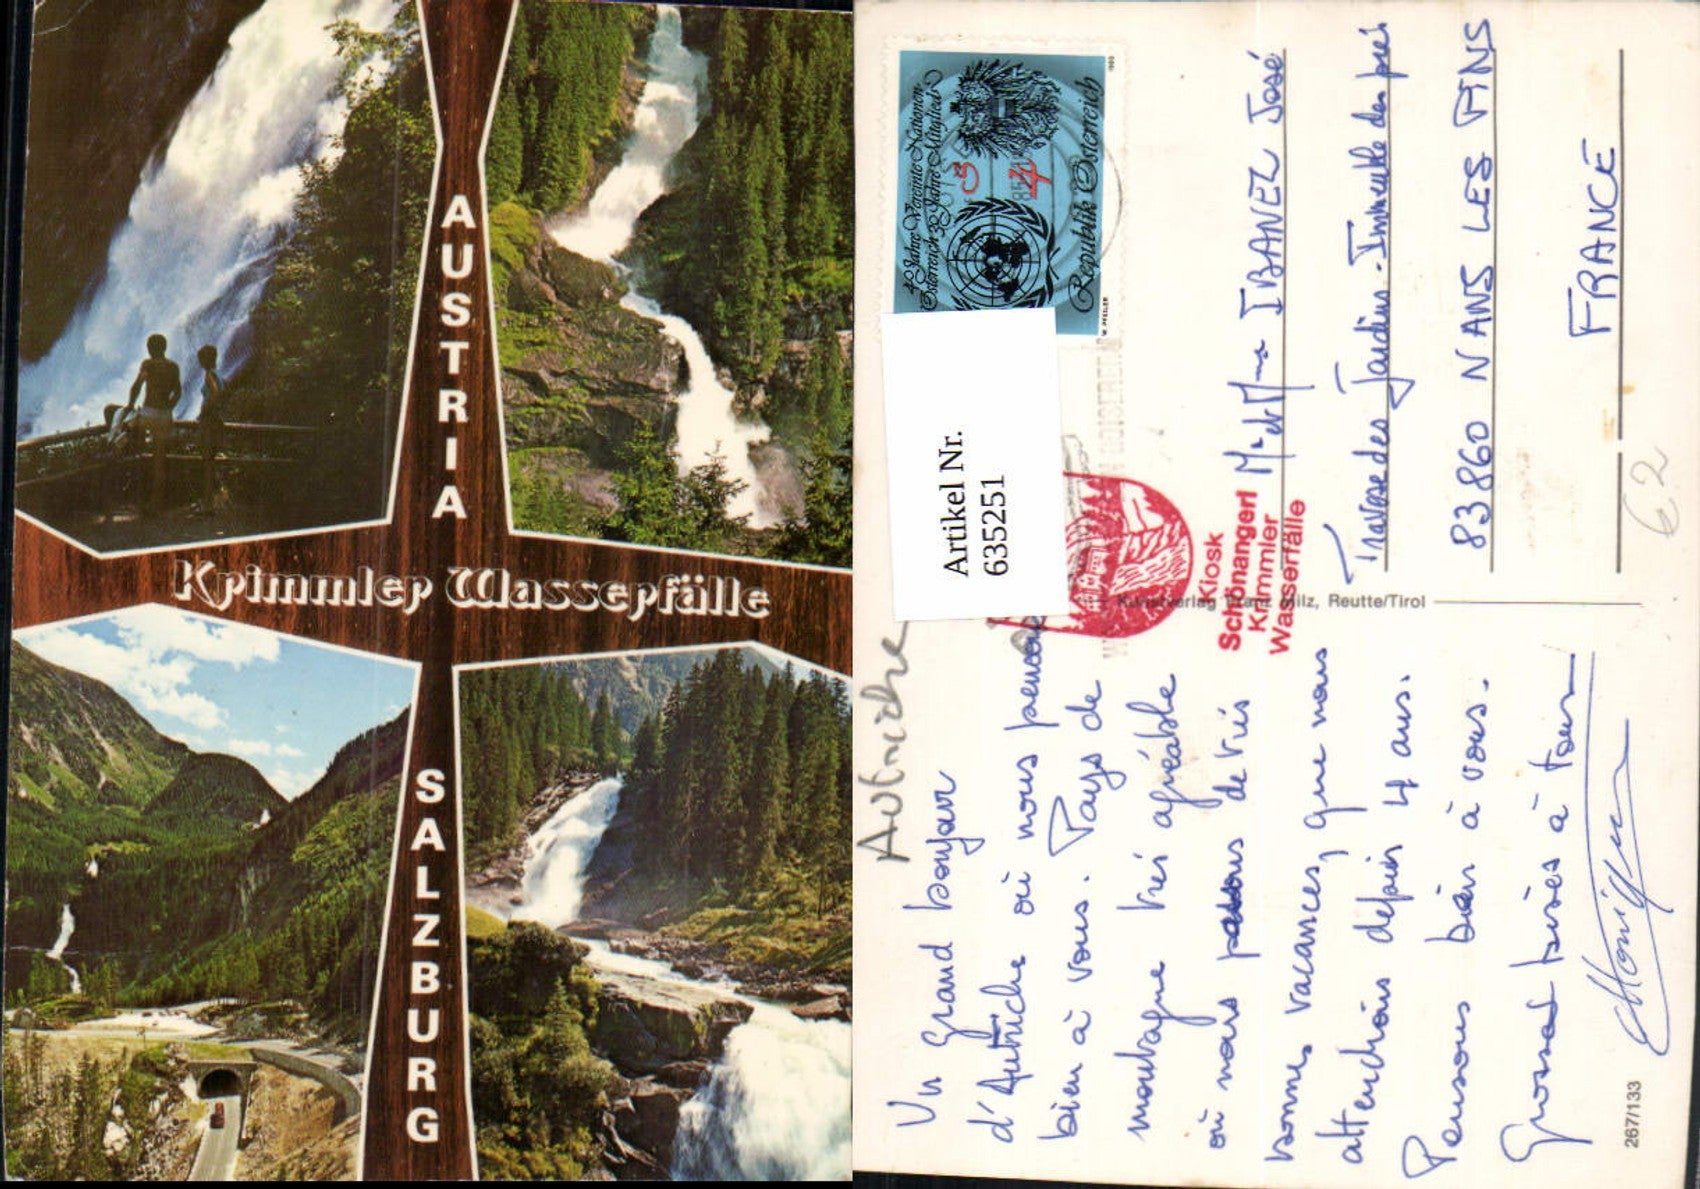 AUSTRIA
Krimmler Wasserfälle
SALZBURG
40 Jahre Vereinte Nationen
Österreich 30 Jahre Mitglied
S 4
Republik Österreich
W. PFEILER
1985
Artikel Nr.
635251
Kiosk
Schönangerl
Krimmler
Wasserfälle
Kunstverlag Franz Milz, Reutte/Tirol
Autriche
Un Grand bonjour
d'Autriche où nous pensons
bien à vous. Pays de
montagne très agréable
où nous passons de très
bonnes vacances, que nous
attendions depuis 4 ans.
Pensons bien à vous.
Grosses bises à tous
Monique
Mr et Mme IBANEZ José
Traverse des Jardins - Immeuble des prés
83860 NANS LES PINS
FRANCE
€2
267/133